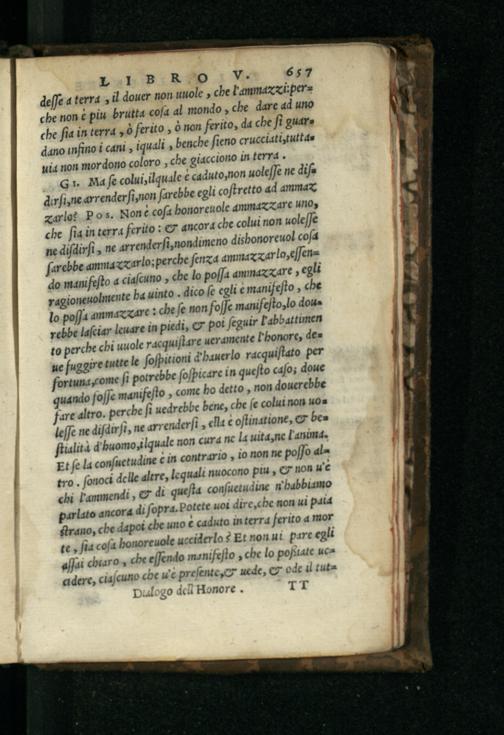 LIBRO V. 657
desse a terra, il douer non uuole, che l'ammazzi:per=
che non è piu brutta cosa al mondo, che dare ad uno
che sia in terra, ò ferito, ò non ferito, da che si guar=
dano infino i cani, iquali, benche sieno crucciati, tutta=
uia non mordono coloro, che giacciono in terra.
GI. Ma se colui, ilquale è caduto, non uolesse ne dis=
dirsi, ne arrendersi, non sarebbe egli costretto ad ammaz
zarlo? POS. Non è cosa honoreuole ammazzare uno,
che sia in terra ferito: & ancora che colui non uolesse
ne disdirsi, ne arrendersi, nondimeno dishonoreuol cosa
sarebbe ammazzarlo; perche senza ammazzarlo, essen=
do manifesto a ciascuno, che lo possa ammazzare, egli
ragioneuolmente ha uinto. dico se egli è manifesto, che
lo possa ammazzare: che se non fosse manifesto, lo dou=
rebbe lasciar leuare in piedi, & poi seguir l'abbattimen
to perche chi uuole racquistare ueramente l'honore, de=
ue fuggire tutte le sospitioni d'hauerlo racquistato per
fortuna, come si potrebbe sospicare in questo caso; doue
quando fosse manifesto, come ho detto, non douerebbe
fare altro. perche si uedrebbe bene, che se colui non uo=
lesse ne disdirsi, ne arrendersi, ella è ostinatione, & be=
stialità d'huomo, ilquale non cura ne la uita, ne l'anima.
Et se la consuetudine è in contrario, io non ne posso al=
tro. sonoci delle altre, lequali nuocono piu, & non u'è
chi l'ammendi, & di questa consuetudine n'habbiamo
parlato ancora di sopra. Potete uoi dire, che non ui paia
strano, che dapoi che uno è caduto in terra ferito a mor
te, sia cosa honoreuole ucciderlo? Et non ui pare egli
assai chiaro, che essendo manifesto, che lo possiate uc=
cidere, ciascuno che u'è presente, & uede, & ode il tut=
Dialogo dell'Honore. TT